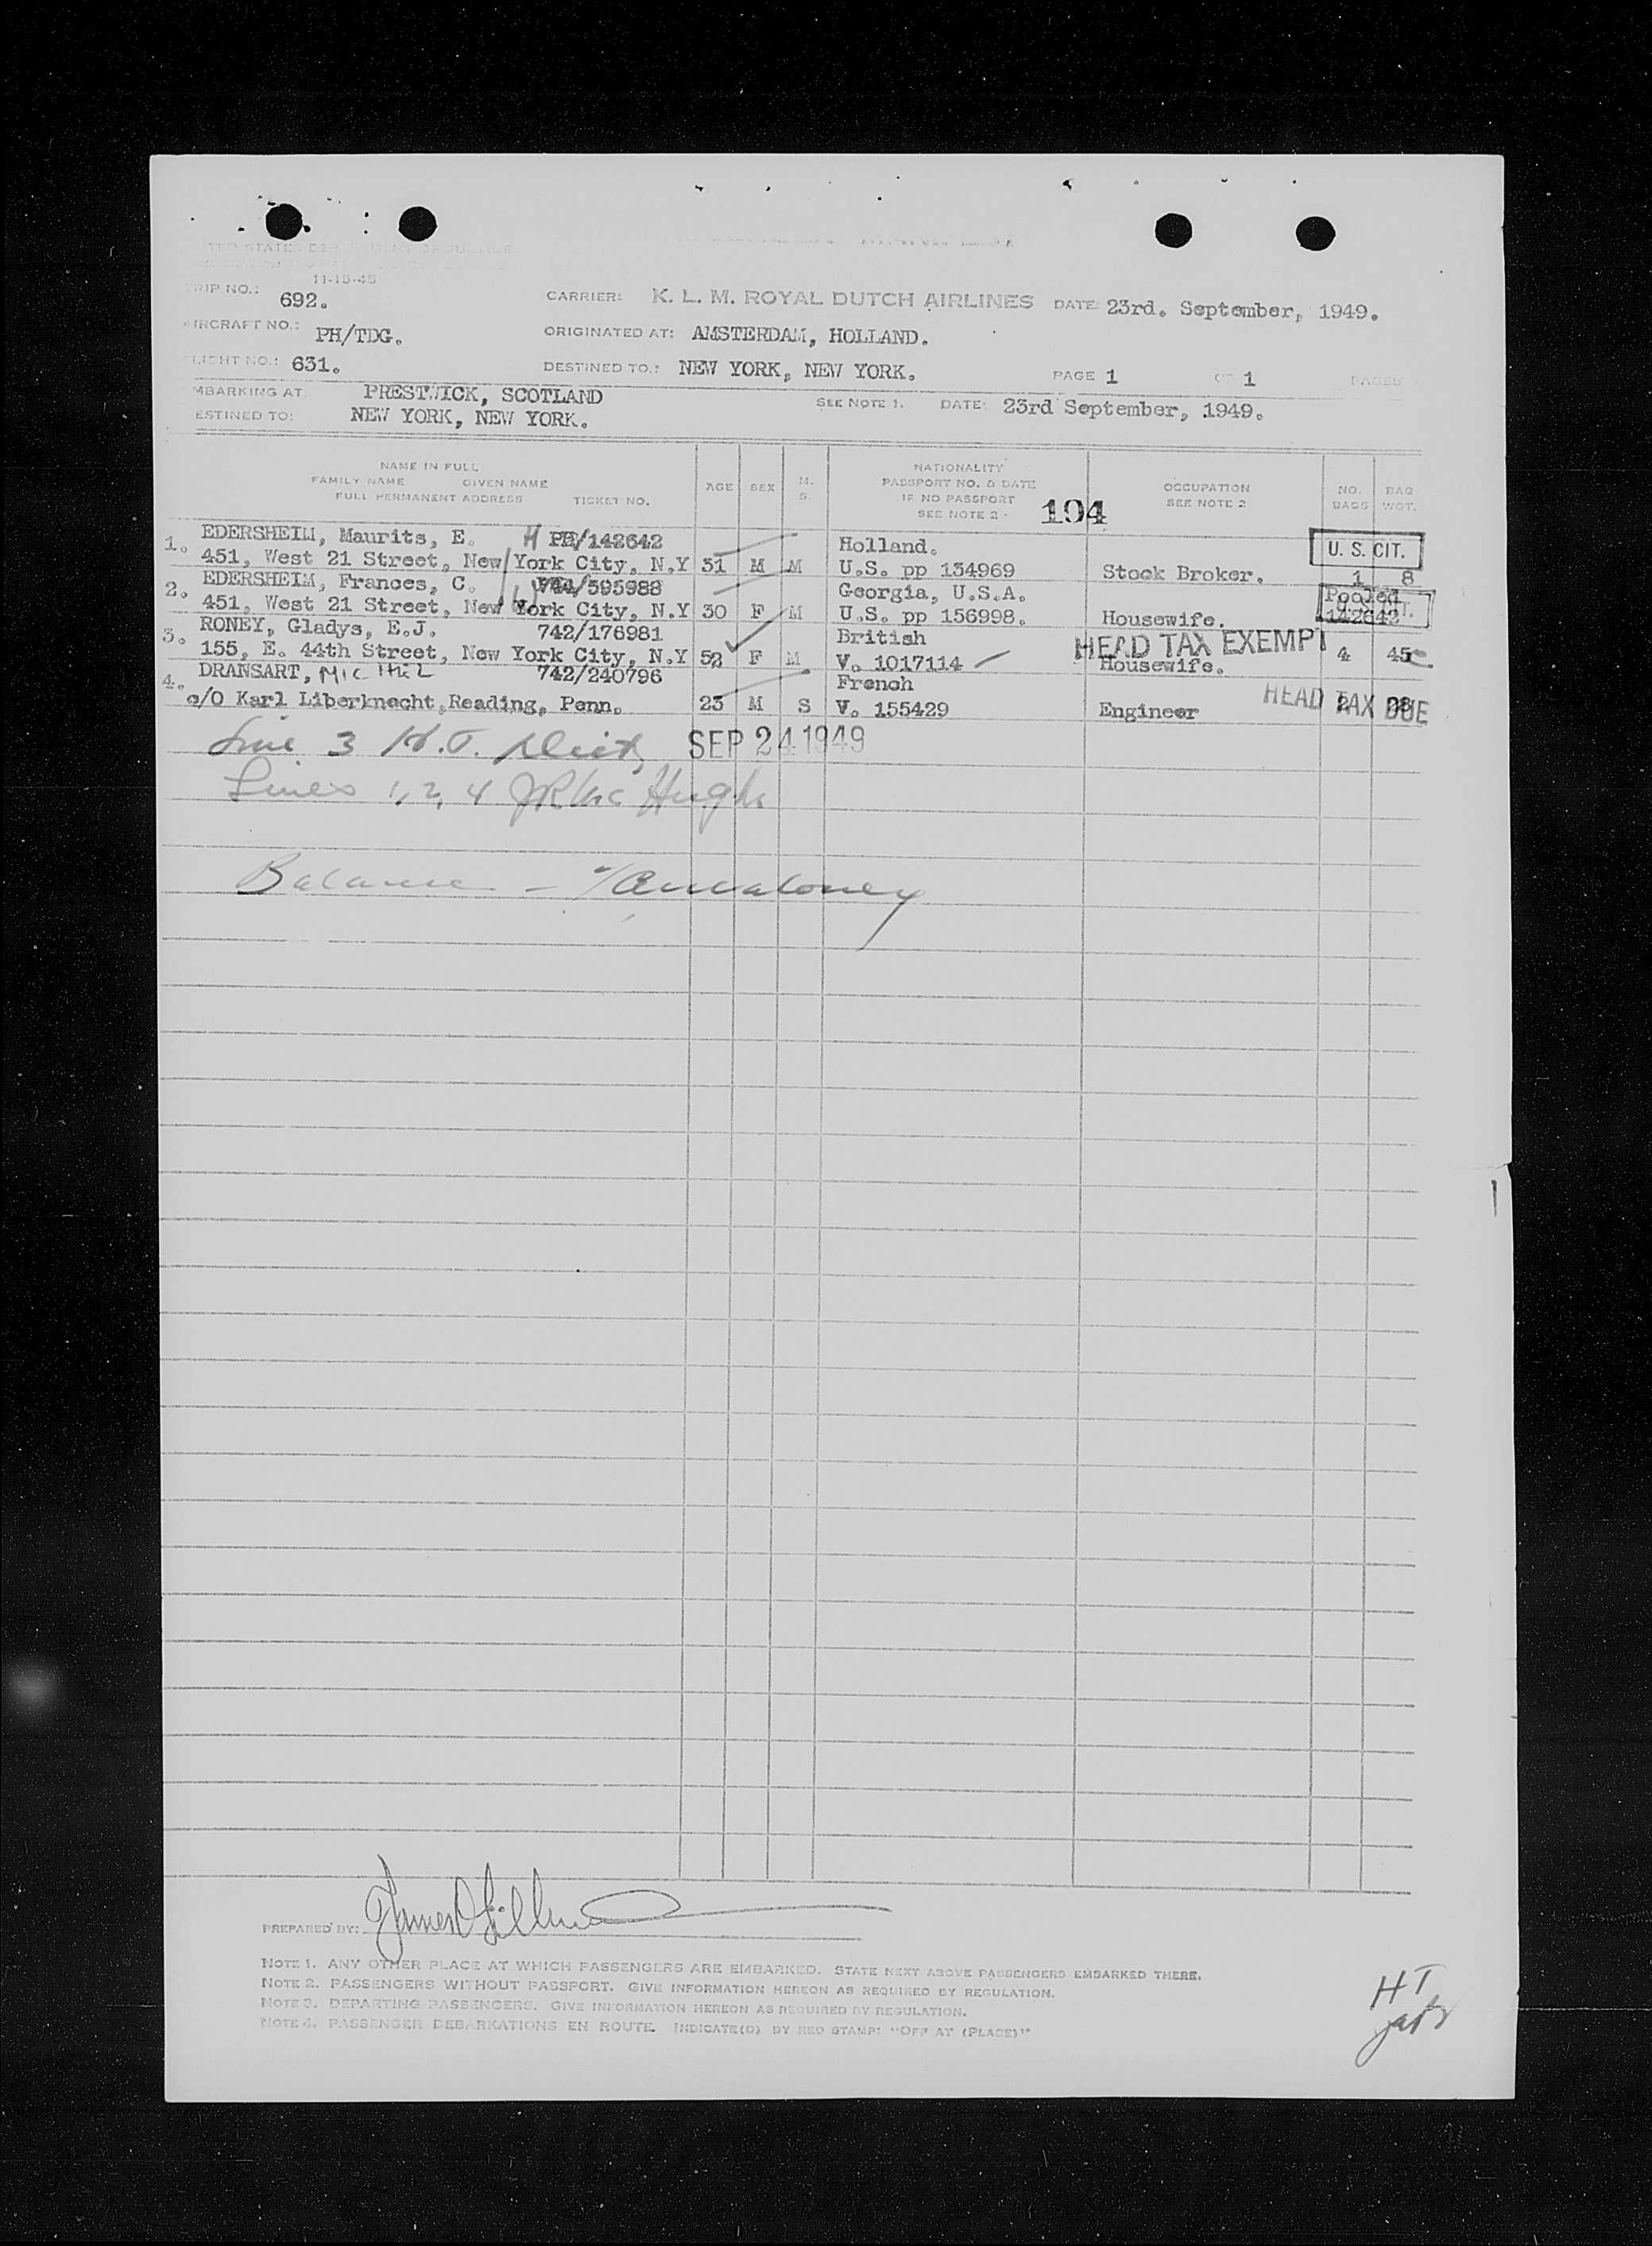 11-15-45
TRIP NO.: 692. CARRIER: K. L. M. ROYAL DUTCH AIRLINES DATE: 23rd. September, 1949.
AIRCRAFT NO.: PH/TDG. ORIGINATED AT: AMSTERDAM, HOLLAND.
FLIGHT NO.: 631. DESTINED TO.: NEW YORK, NEW YORK. PAGE 1 OF 1 PAGES
EMBARKING AT PRESTWICK, SCOTLAND SEE NOTE 1. DATE: 23rd September, 1949.
DESTINED TO: NEW YORK, NEW YORK.
NAME IN FULL
FAMILY NAME GIVEN NAME
FULL PERMANENT ADDRESS TICKET NO.
AGE SEX M. S.
NATIONALITY
PASSPORT NO. & DATE
IF NO PASSPORT
SEE NOTE 2
194
OCCUPATION
SEE NOTE 2
NO. BAGS
BAG WGT.
1. EDERSHEIM, Maurits, E. PH/142642 Holland. U. S. CIT.
451, West 21 Street, New York City, N.Y 31 M M U.S. pp 134969 Stock Broker. 1 8
2. EDERSHEIM, Frances, C. /595988 Georgia, U.S.A. Pooled
451, West 21 Street, New York City, N.Y 30 F M U.S. pp 156998. Housewife. 142642
3. RONEY, Gladys, E.J. 742/176981 British HEAD TAX EXEMPT
155, E. 44th Street, New York City, N.Y 52 F M V. 1017114 Housewife. 4 45
4. DRANSART, Michel 742/240796 French
c/O Karl Liberknecht, Reading, Penn. 23 M S V. 155429 Engineer HEAD TAX DUE
Line 3 H.T. SEP 24 1949
Lines 1, 2, 4
Balance -
PREPARED BY:
NOTE 1. ANY OTHER PLACE AT WHICH PASSENGERS ARE EMBARKED. STATE NEXT ABOVE PASSENGERS EMBARKED THERE.
NOTE 2. PASSENGERS WITHOUT PASSPORT. GIVE INFORMATION HEREON AS REQUIRED BY REGULATION.
NOTE 3. DEPARTING PASSENGERS. GIVE INFORMATION HEREON AS REQUIRED BY REGULATION.
NOTE 4. PASSENGER DEBARKATIONS EN ROUTE. INDICATE(D) BY RED STAMP: "OFF AT (PLACE)"
HT